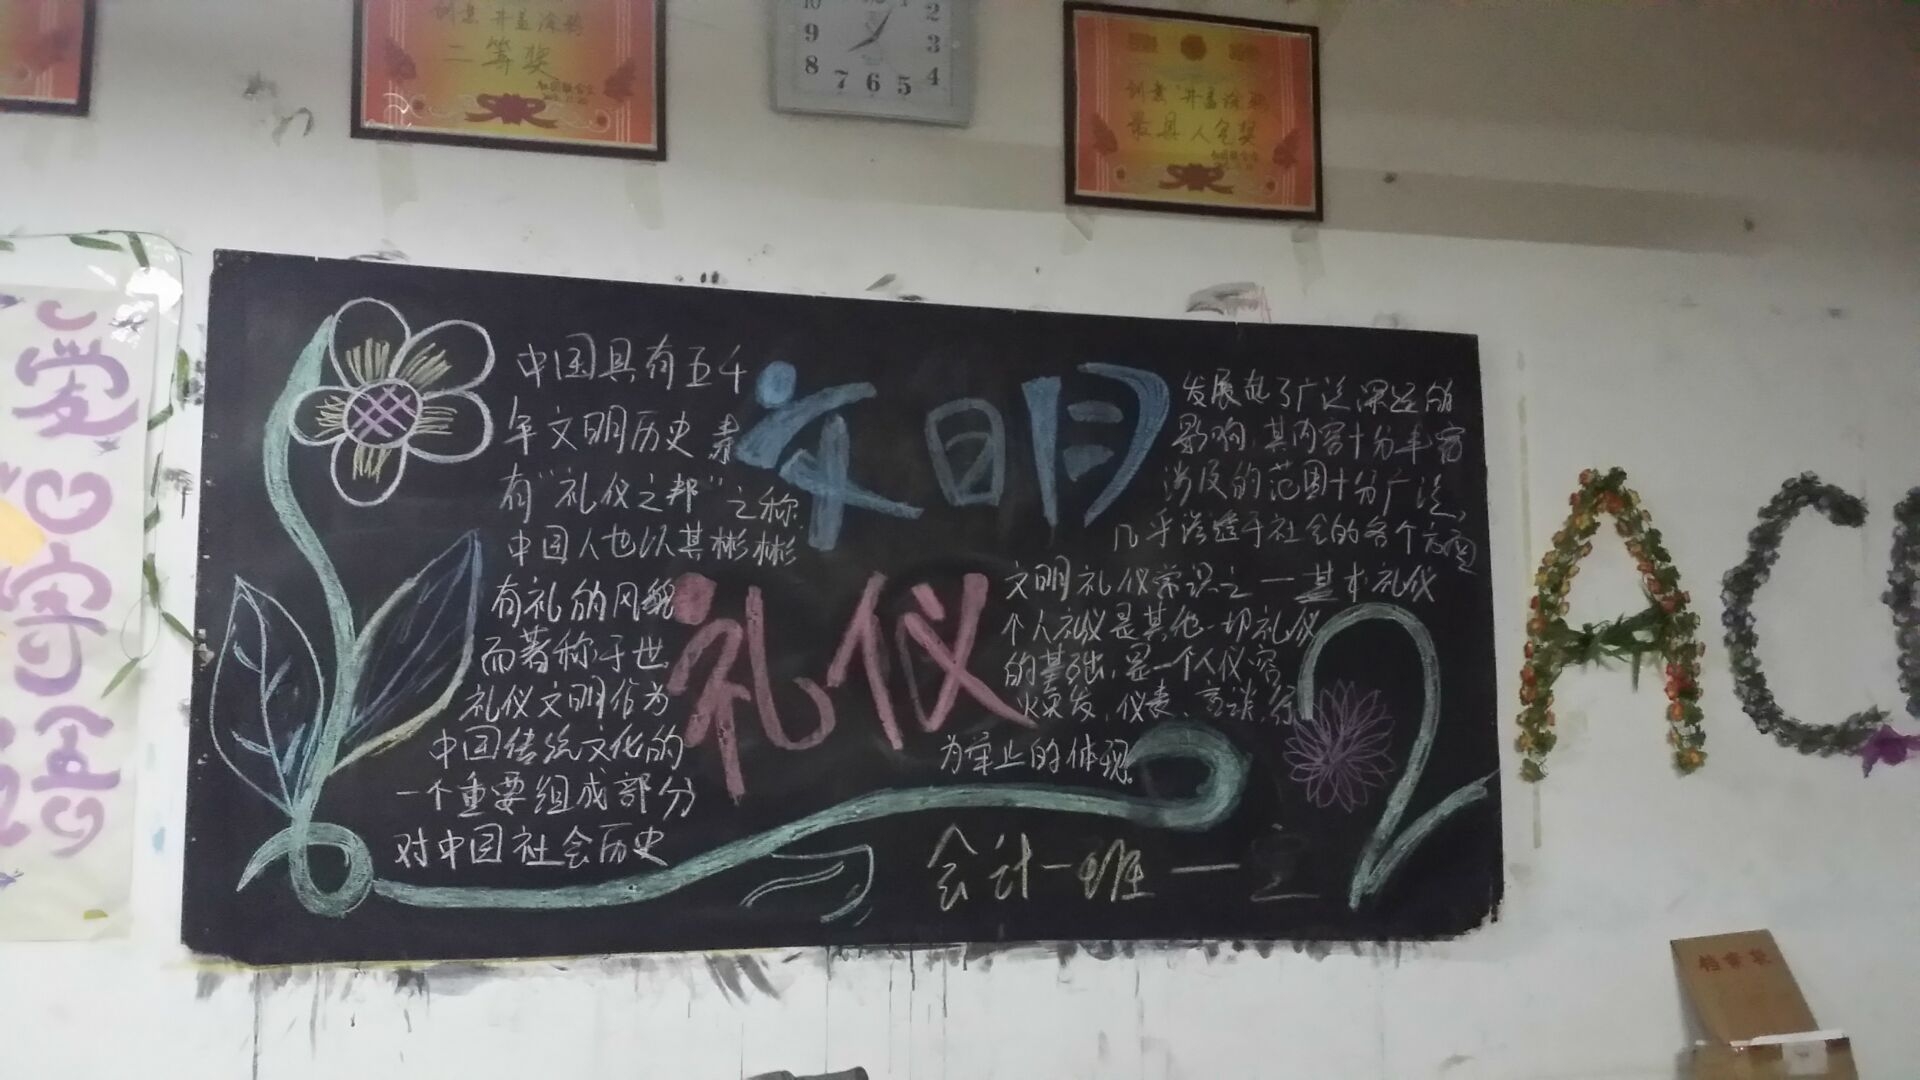 创意"井盖涂鸦
二等奖
10
2
9
3
8
4
7 6 5
创意"井盖涂鸦
最具人气奖
爱
心
寄
语
文明
礼仪
中国具有五千
年文明历史素
有"礼仪之邦"之称
中国人也以其彬彬
有礼的风貌
而著称于世
礼仪文明作为
中国传统文化的
一个重要组成部分
对中国社会历史
发展起了广泛深远的
影响,其内容十分丰富
涉及的范围十分广泛,
几乎渗透于社会的各个方面
文明礼仪常识之一 基本礼仪
个人礼仪是其他一切礼仪
的基础,是一个人仪容
焕发,仪表、言谈,行
为举止的体现。
会计一班一室
AC
档案袋